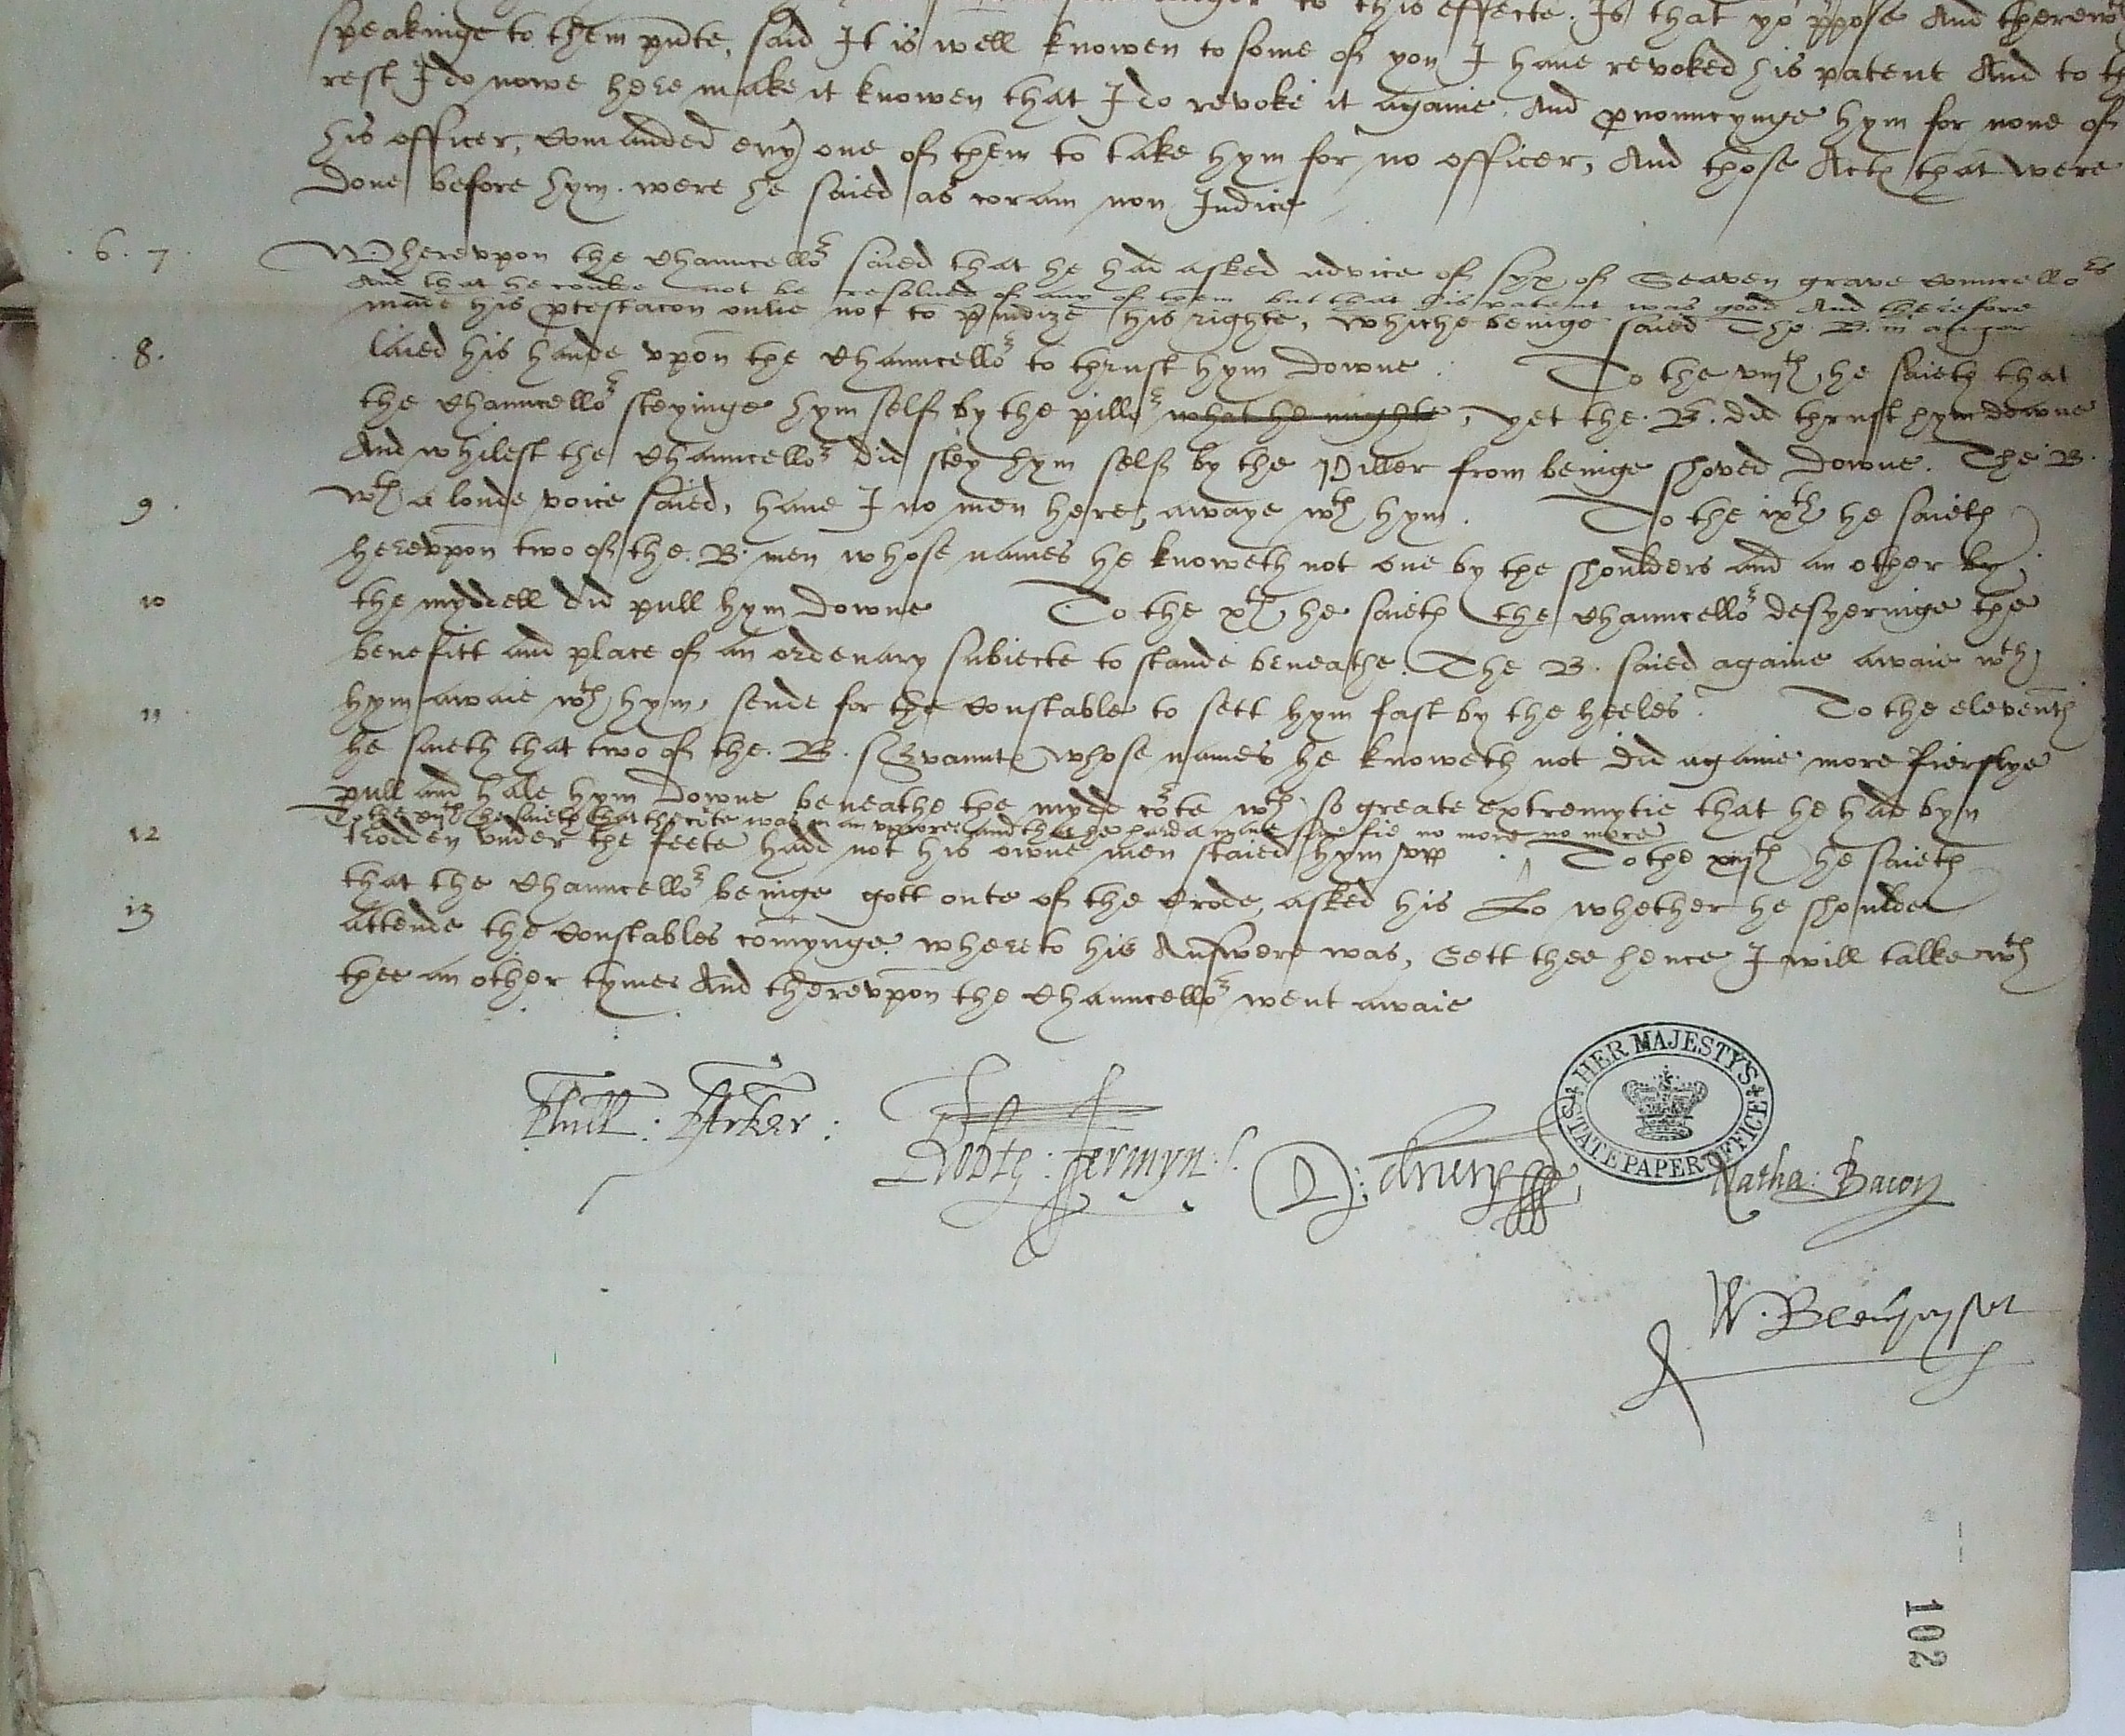 to this effecte. Is that yor p'pose And therewth
speakinge to them pnte, said It is well knowen to some of you I haue revoked his patent And to the
rest I do nowe here make it knowen that I do revoke it againe. And pronouncynge hym for none of
his officer, Comanded eny one of them to take hym for no officer, And those Actes that were
done before hym. were he saied as coram non Judice
. 6 . 7 . Wherevpon the Chauncellor saied that he had asked advice of syx of Seaven grave Councellors
And that he coulde not be resolued of any of them but that his patent was good And therefore
made his ptestacon onlie not to p'iudize his righte, whiche beinge saied The B. in anger
. 8 . laied his hande vpon the Chauncellor to thrust hym downe . To the viijth, he saieth that
the Chauncellor steyinge hym self by the pillor what he mighte, yet the . B . did thrust hym downe
And whilest the Chauncellor did stey hym self by the Piller from beinge shoved downe. The B.
9 . wth a loude voice saied, haue I no men here, awaye wth hym . To the ixth he saieth
herevpon two of the . B . men whose names he knoweth not one by the shoulders and an other by
10 the myddell did pull hym downe To the xth, he saieth the Chauncellor desyeringe the
benefitt and place of an ordenary subiecte to stande beneathe. The B. saied againe awaie wth
hym awaie wth hym, sende for the Constable to sett hym fast by the heeles.
11 To the eleventh
he saieth that two of the . B . servauntes whose names he knoweth not did againe more fierslye
pull and hale hym downe beneathe the mydd corte wth so greate extremytie that he had byn
To the xijth he saieth that the corte was in an vprore and that he hard a mane saie fie no more no more
12 trodden vnder the feete hadd not his owne men staied hym vpp . To the xiijth he saieth
13 that the Chauncellor beinge gott oute of the Crode, asked his Lo whether he shoulde
attende the Constables comynge. whereto his Answere was, Gett thee hence I will talke wth
thee an other tyme. And therevpon the Chauncellor went awaie
HER MAJESTY'S STATE PAPER OFFICE
Robte : Jermyn :
D : drury
Natha : Bacon
102